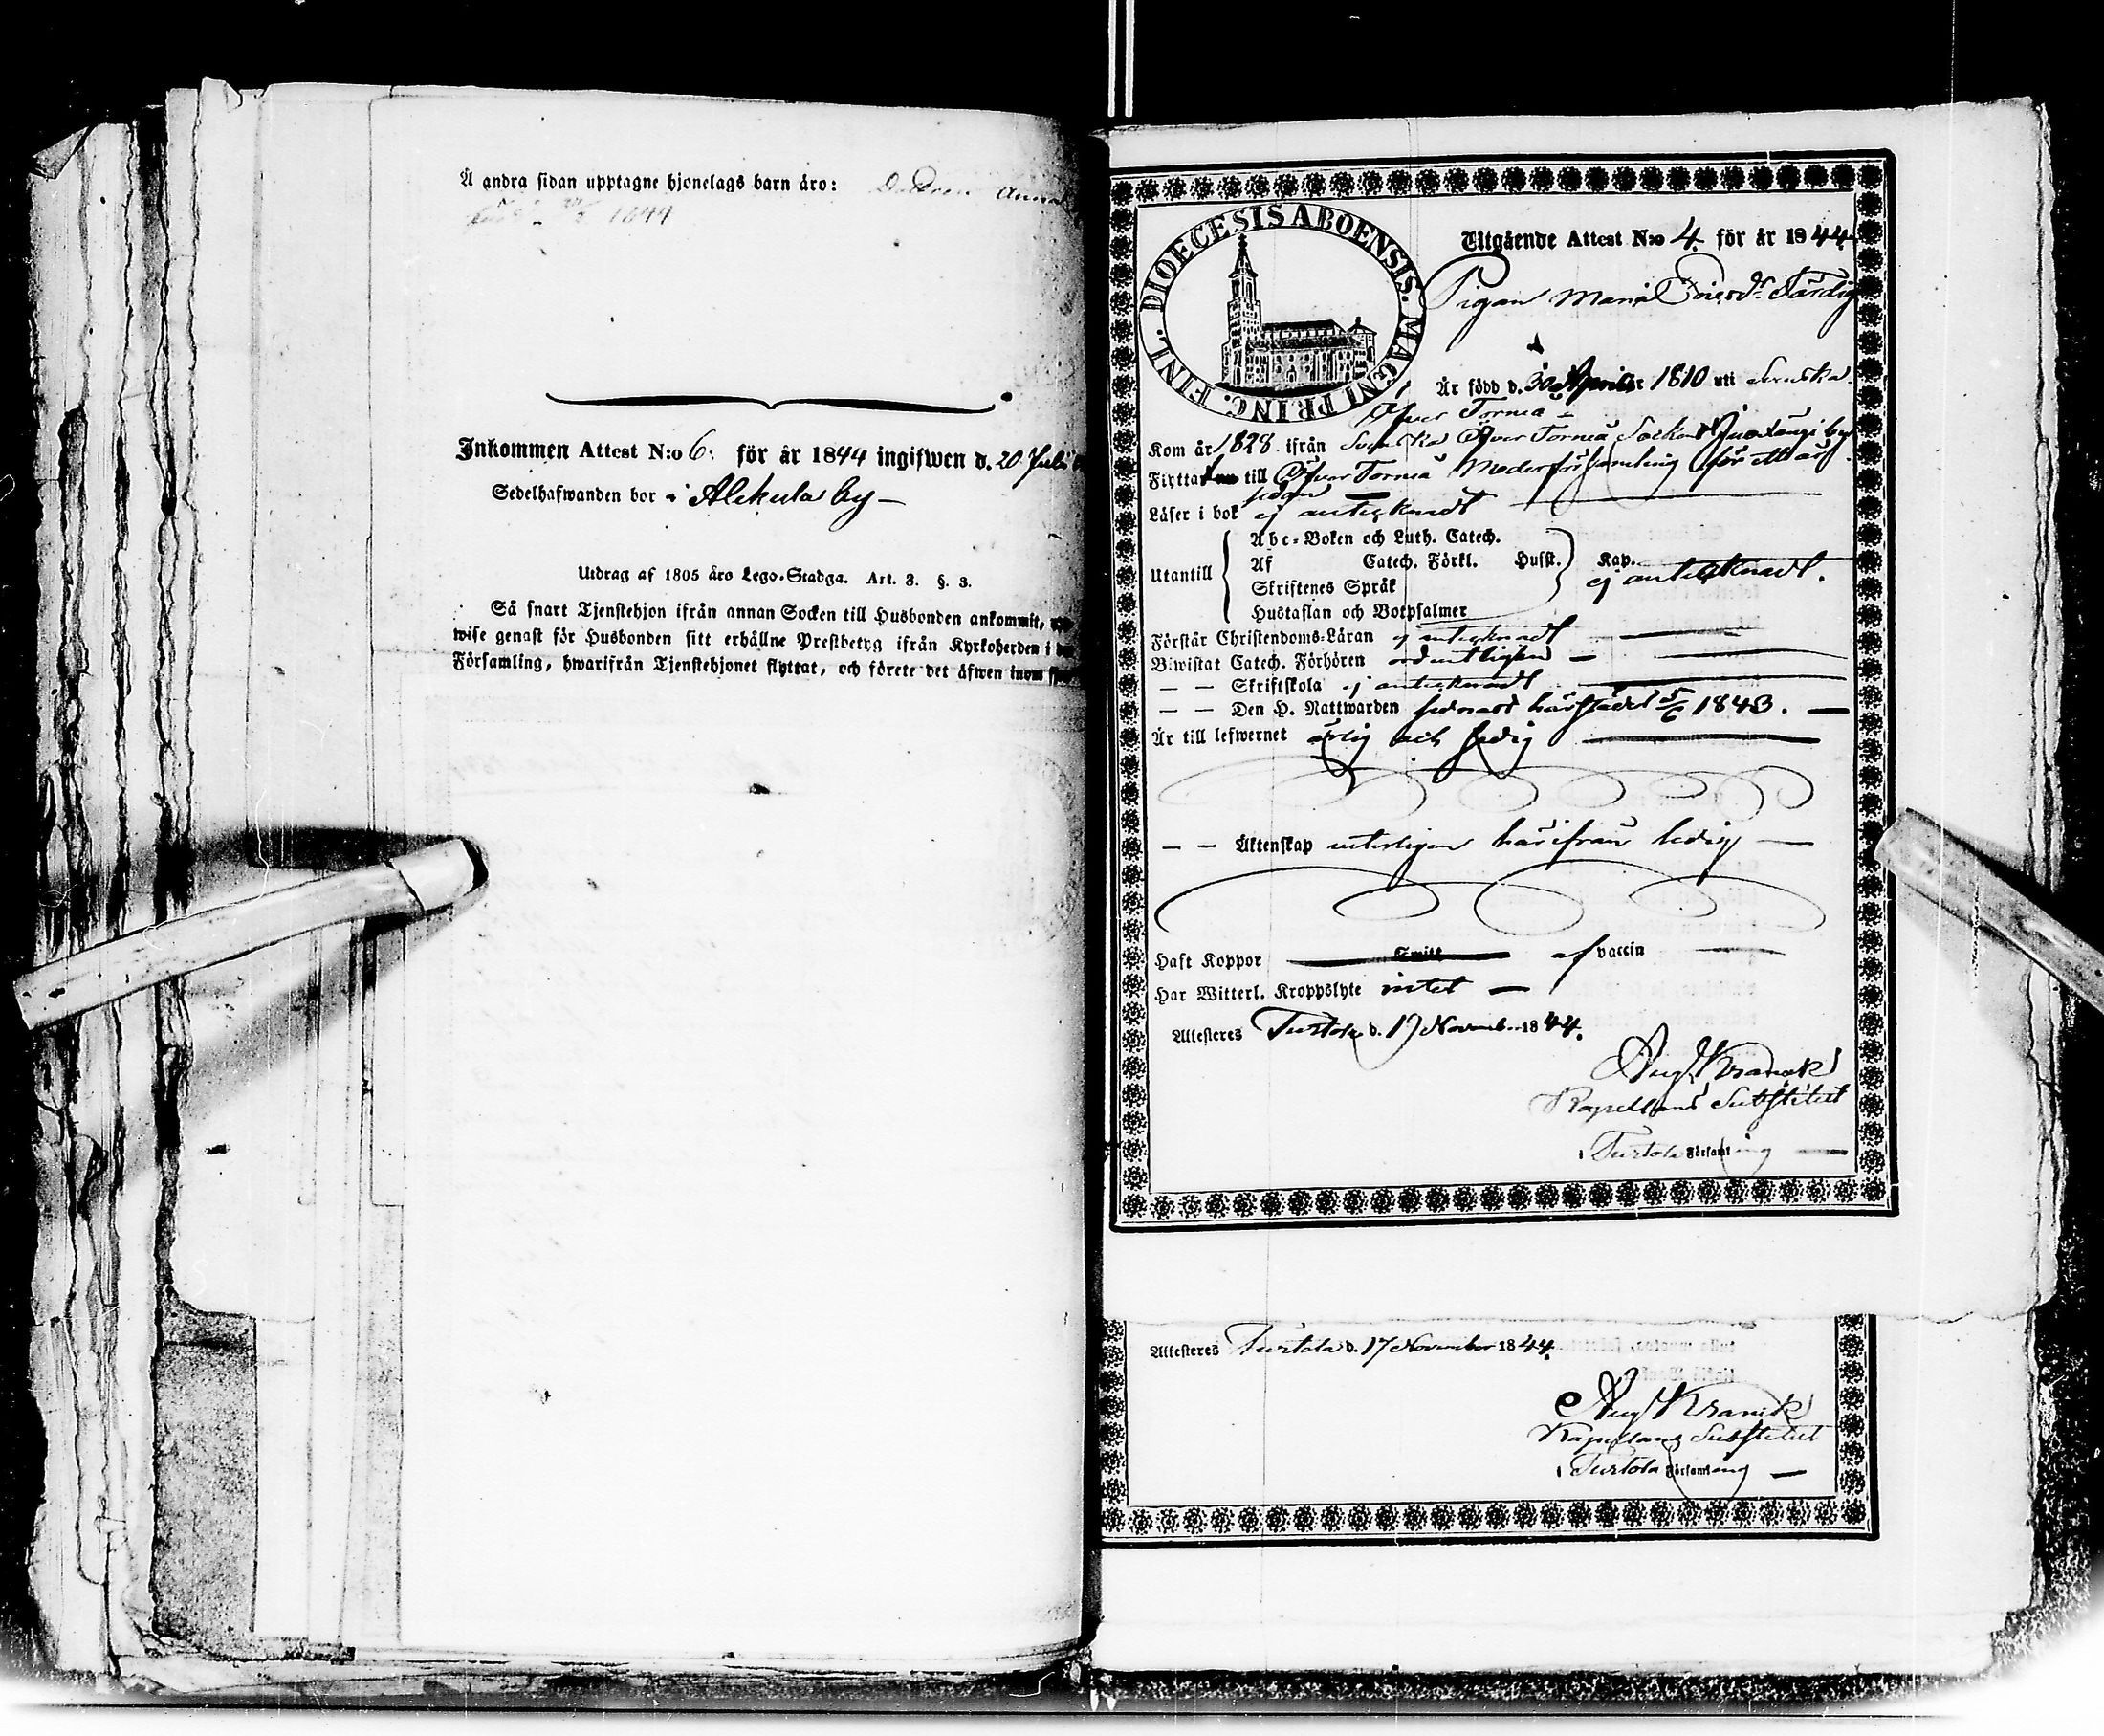 Å andra sidan upptagne hjonelags barn äro: Dottren Anna
1844
Inkommen Attest N:o 6: för år 1844 ingifwen d. 20 Juli
Sedelhafwanden bor i Alckula by –
Utdrag af 1805 års Lego-Stadga. Art. 3. §. 3.
Så snart Tjenstehjon ifrån annan Socken till Husbonden ankommit,
wise genast för Husbonden sitt erhållne Prestbetyg ifrån Kyrkoherden i
Församling, hwarifrån Tjenstehjonet flyttat, och förete det äfwen inom
DIOECESIS ABOENSIS. MAGNI PRINC. FINL.
Utgående Attest N:o 4. för år 1844
Pigan Maria Tärdig
Är född d. 30 April år 1810 uti Svenska
Öfver Torneå
Kom år 1828 ifrån Svenska Öfver Torneå Socken Juoxengi by
Flyttar till Öfver Torneå Moderförsamling för ett år
sedan
Läser i bok ej anteknadt
Utantill
Abc-Boken och Luth. Catech.
Af Catech. Förkl. Husst. Kap.
ej anteknadt.
Skriftenes Språk
Hustaflan och Botpsalmer
Förstår Christendoms-Läran ej anteknadt
Biwistat Catech. Förhören ordentligen –
— — Skriftskola ej anteknadt
— — Den H. Nattwarden sednast härstädes 5/6 1843. —
Är till lefwernet ärlig och sedig
— — Äktenskap veterligen härifrån ledig —
Haft Koppor Smitt af vaccin
Har Witterl. Kroppslyte intet —
Attesteras Turtola d. 17 November 1844.
Aug Kranck
Kapellans Substitut
i Turtola Församling —
Attesteras Turtola d. 17 November 1844.
Aug Kranck
Kapellans Substitut
i Turtola Församling —